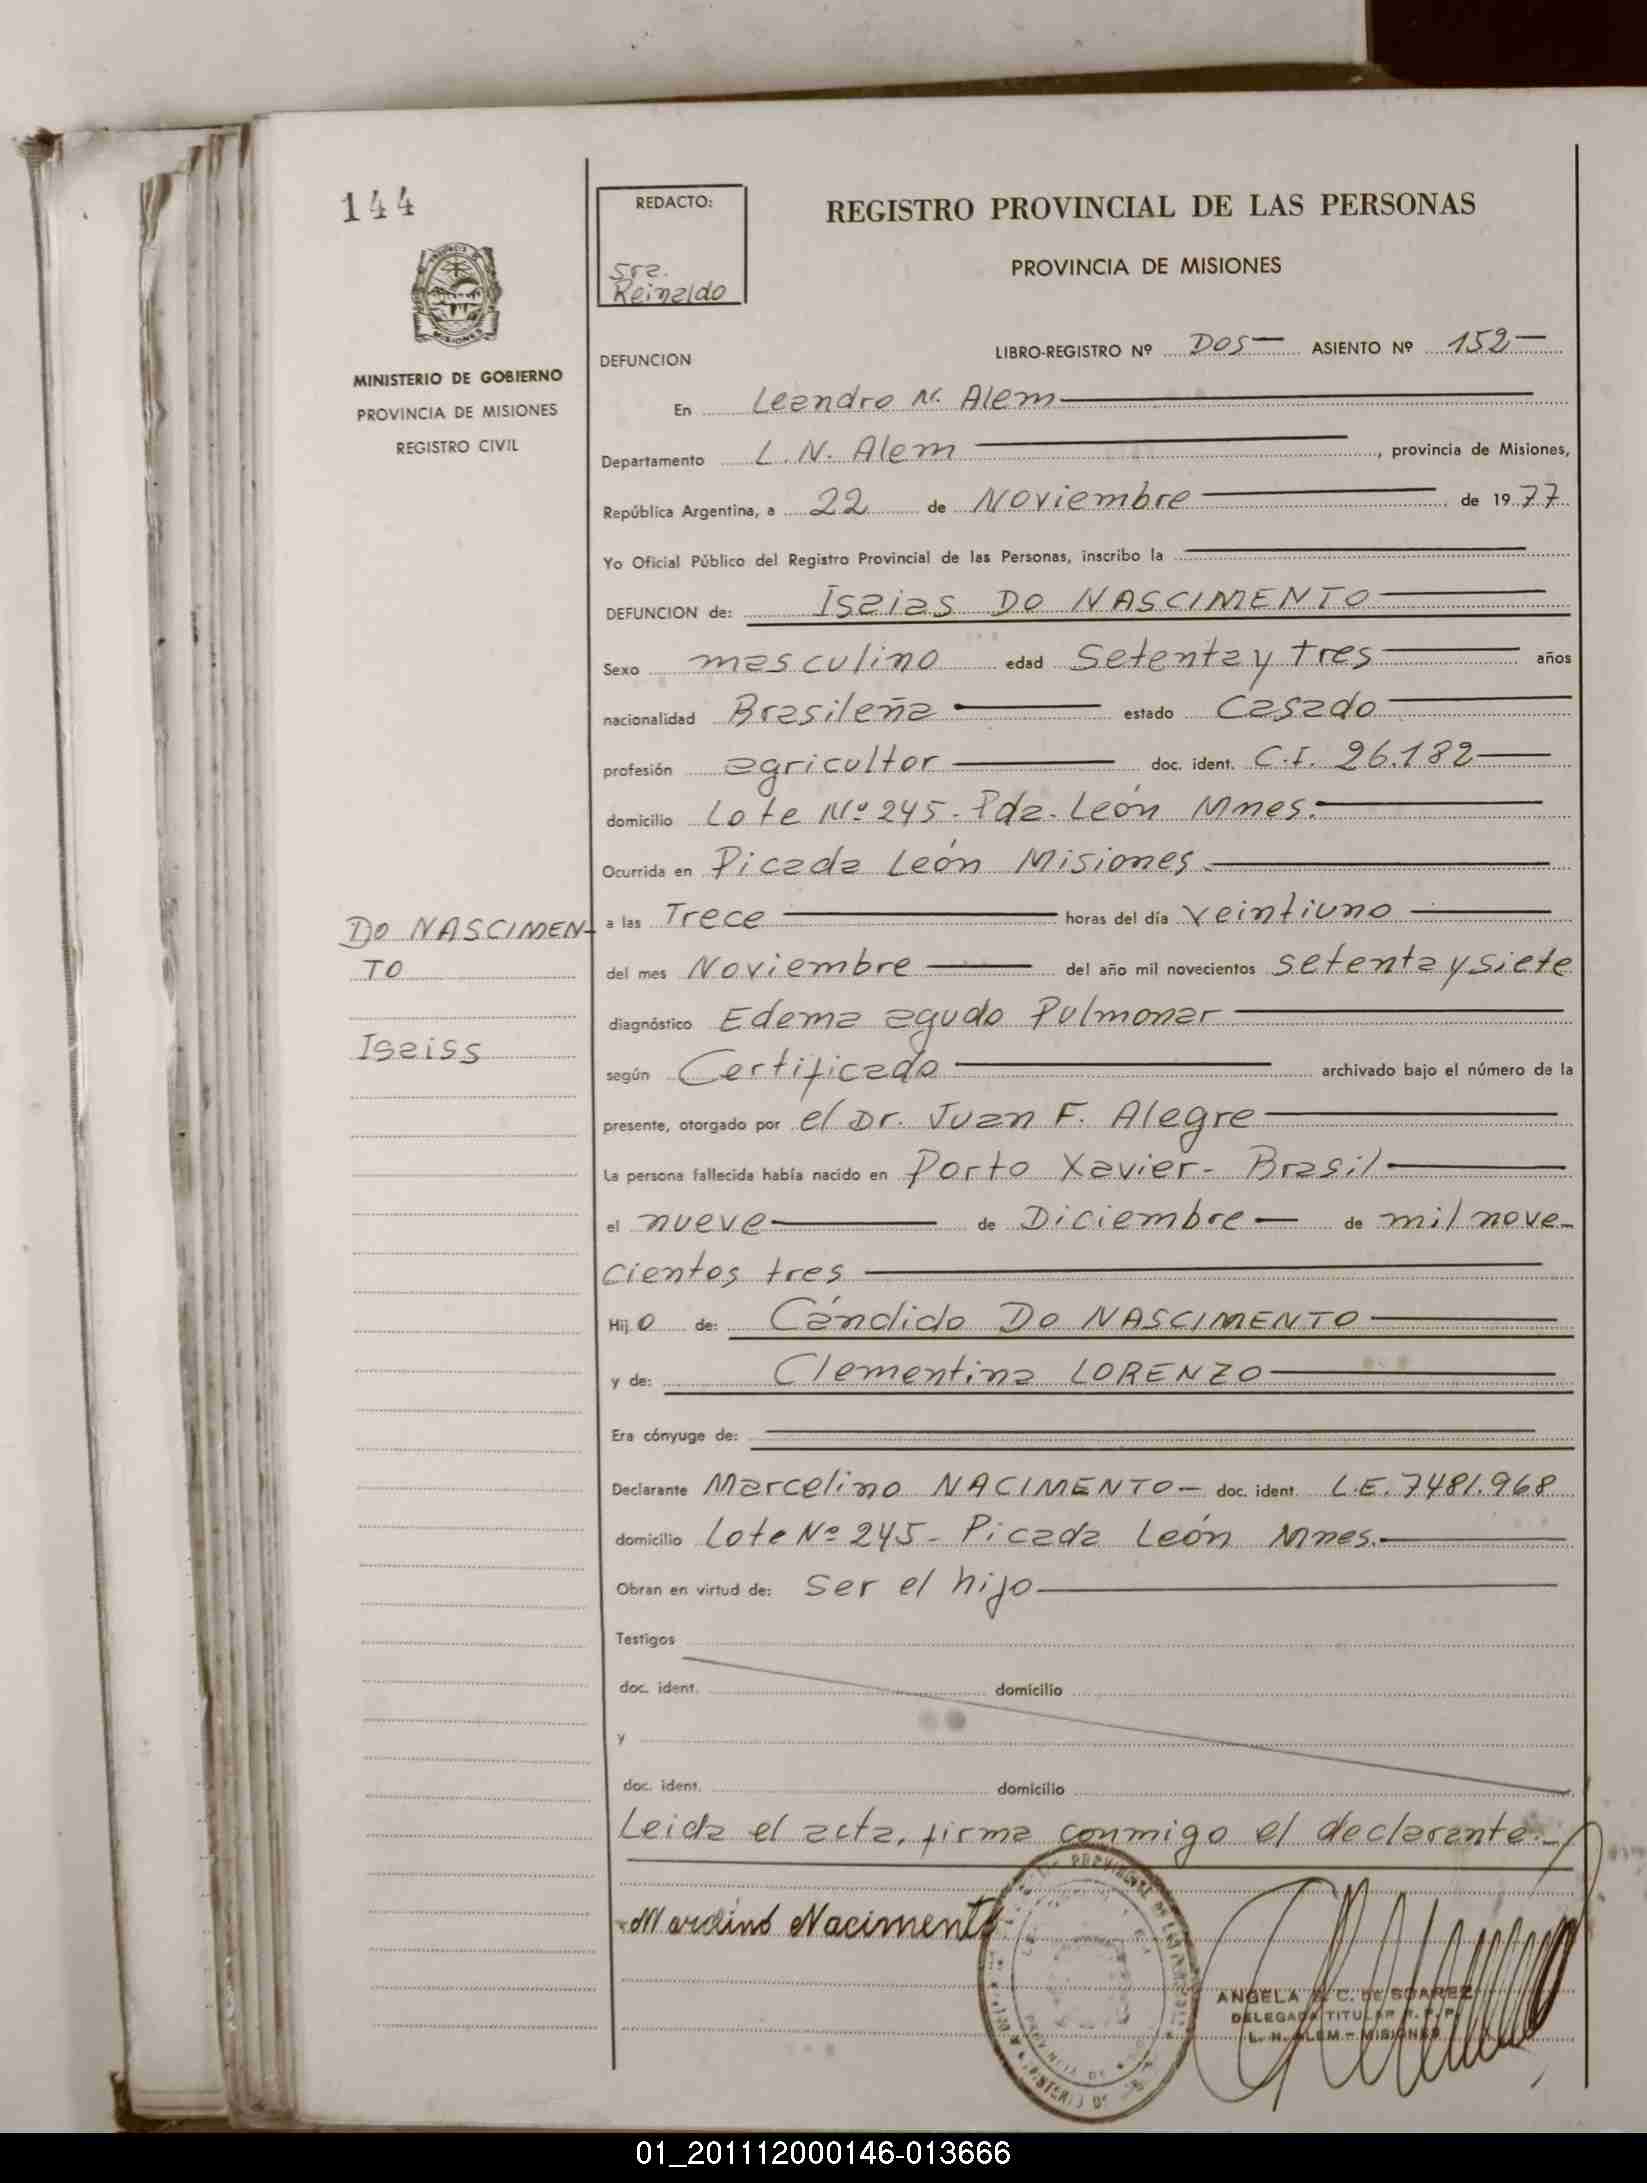 144
REDACTO:
Sra.
Reinaldo
REGISTRO PROVINCIAL DE LAS PERSONAS
PROVINCIA DE MISIONES
MISIONES
MINISTERIO DE GOBIERNO
PROVINCIA DE MISIONES
REGISTRO CIVIL
DEFUNCION
LIBRO-REGISTRO Nº DOS— ASIENTO Nº 152—
En Leandro N. Alem
Departamento L. N. Alem , provincia de Misiones,
República Argentina, a 22 de Noviembre de 1977
Yo Oficial Público del Registro Provincial de las Personas, inscribo la
DEFUNCION de: Isaias DO NASCIMENTO
Sexo masculino edad Setenta y tres años
nacionalidad Brasileña estado Casado
profesión agricultor doc. ident. C.I. 26.182
domicilio Lote Nº 245 - Pda. León Mnes.
Ocurrida en Picada León Misiones.
a las Trece horas del día veintiuno
del mes Noviembre del año mil novecientos setenta y siete
diagnóstico Edema agudo Pulmonar
según Certificado archivado bajo el número de la
presente, otorgado por el Dr. Juan F. Alegre
La persona fallecida había nacido en Porto Xavier - Brasil
el nueve de Diciembre de mil nove-
cientos tres
Hijo de: Cándido DO NASCIMENTO
y de: Clementina LORENZO
Era cónyuge de:
Declarante Marcelino NACIMENTO — doc. ident. L.E. 7481.968
domicilio Lote Nº 245 - Picada León Mnes.
Obran en virtud de: ser el hijo
Testigos
doc. ident. domicilio
y
doc. ident. domicilio
Leida el acta, firma conmigo el declarante.-
DO NASCIMEN-
TO
Isaias
Nacimento
ANGELA C. DE SOAREZ
DELEGADA TITULAR R. P. P.
L. N. ALEM - MISIONES
01_201112000146-013666